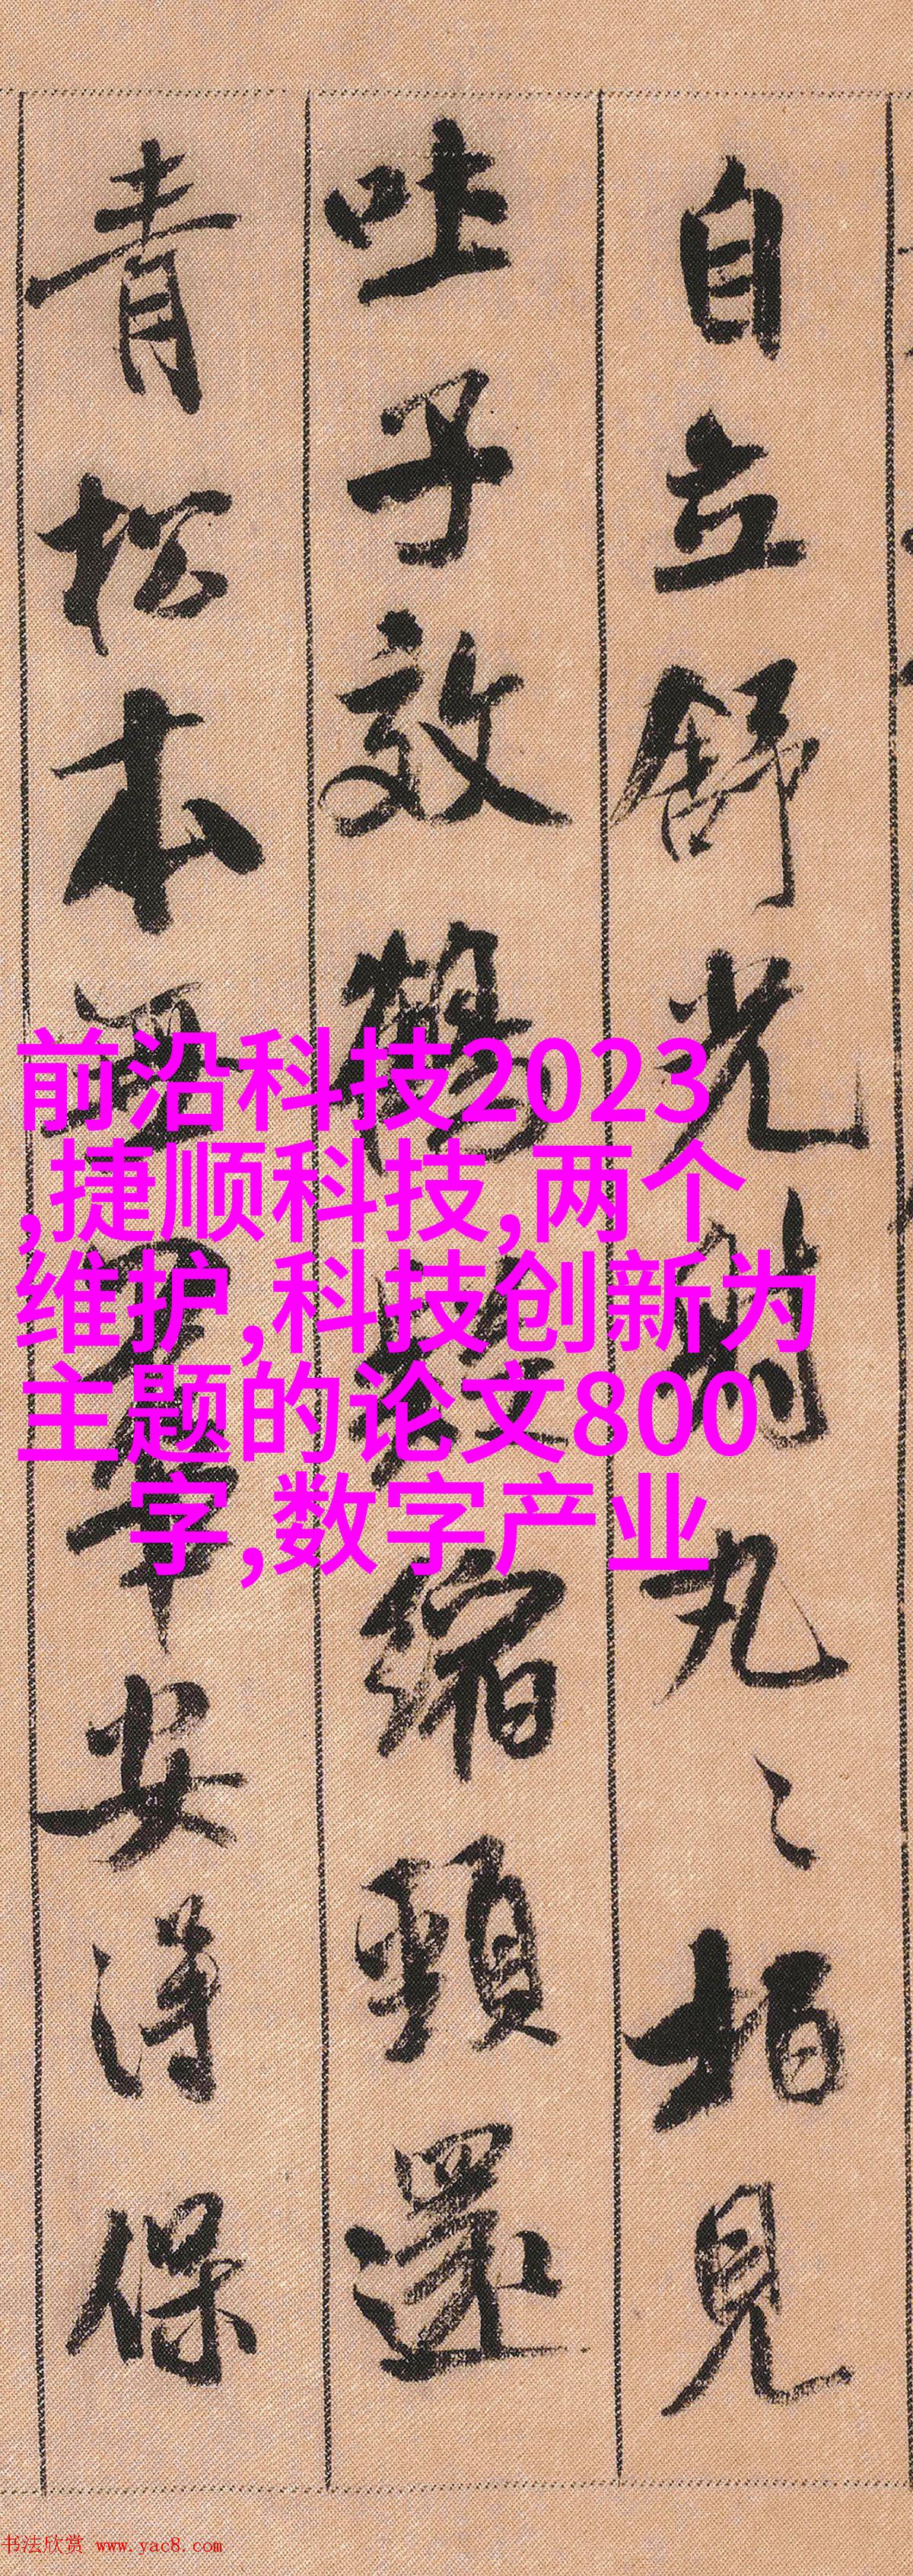 自立舒光射丸〻柏見
吐子效鶴疑縮頸還
青松本無華安得保
前沿科技2023
,捷顺科技,两个
维护,科技创新为
主题的论文800
字,数字产业
书法欣赏 www.yac8.com